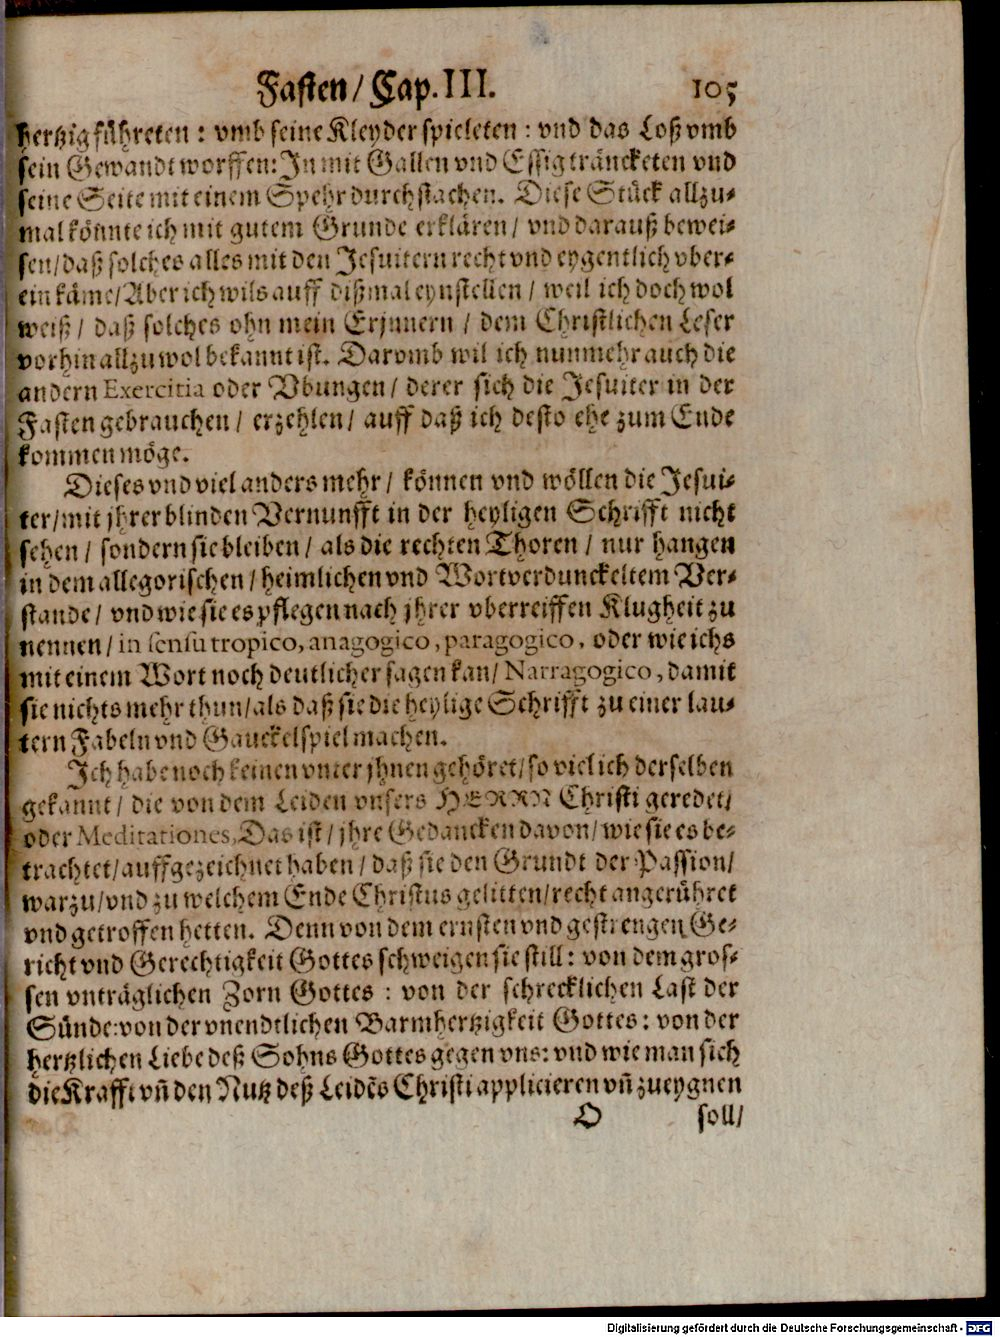 Fasten / Cap. III. 105
hertzig führeten : vmb seine Kleyder spieleten : vnd das Loß vmb
sein Gewandt worffen: In mit Gallen vnd Essig träncketen vnd
seine Seite mit einem Spehr durchstachen. Diese Stück allzu-
mal könnte ich mit gutem Grunde erklären / vnd darauß bewei-
sen / daß solches alles mit den Jesuitern recht vnd eygentlich vber-
ein käme / Aber ich wils auff dißmal eynstellen / weil ich doch wol
weiß / daß solches ohn mein Erjnnern / dem Christlichen Leser
vorhin allzu wol bekannt ist. Darvmb wil ich nunmehr auch die
andern Exercitia oder Vbungen / derer sich die Jesuiter in der
Fasten gebrauchen / erzehlen / auff daß ich desto ehe zum Ende
kommen möge.
Dieses vnd viel anders mehr / können vnd wöllen die Jesui-
ter / mit jhrer blinden Vernunfft in der heyligen Schrifft nicht
sehen / sondern sie bleiben / als die rechten Thoren / nur hangen
in dem allegorischen / heimlichen vnd Wortverdunckeltem Ver-
stande / vnd wie sie es pflegen nach jhrer vberreiffen Klugheit zu
nennen / in sensu tropico, anagogico, paragogico, oder wie ichs
mit einem Wort noch deutlicher sagen kan / Narragogico, damit
sie nichts mehr thun / als daß sie die heylige Schrifft zu einer lau-
tern Fabeln vnd Gauckelspiel machen.
Ich habe noch keinen vnter jhnen gehöret / so viel ich derselben
gekannt / die von dem Leiden vnsers HERRN Christi geredet /
oder Meditationes, Das ist / jhre Gedancken davon / wie sie es be-
trachtet / auffgezeichnet haben / daß sie den Grundt der Passion /
warzu / vnd zu welchem Ende Christus gelitten / recht angerühret
vnd getroffen hetten. Denn von dem ernsten vnd gestrengen Ge-
richt vnd Gerechtigkeit Gottes schweigen sie still : von dem gros-
sen vnträglichen Zorn Gottes : von der schrecklichen Last der
Sünde: von der vnendtlichen Barmhertzigkeit Gottes : von der
hertzlichen Liebe deß Sohns Gottes gegen vns: vnd wie man sich
die Krafft vñ den Nutz deß Leidẽs Christi applicieren vñ zueygnen
O soll /
Digitalisierung gefördert durch die Deutsche Forschungsgemeinschaft - DFG